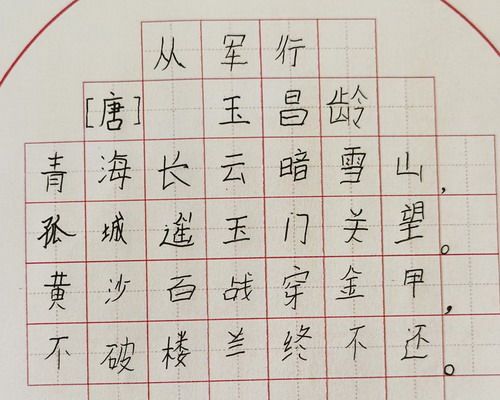 从军行
[唐] 玉昌龄
青海长云暗雪山，
孤城遥玉门关望。
黄沙百战穿金甲，
不破楼兰终不还。